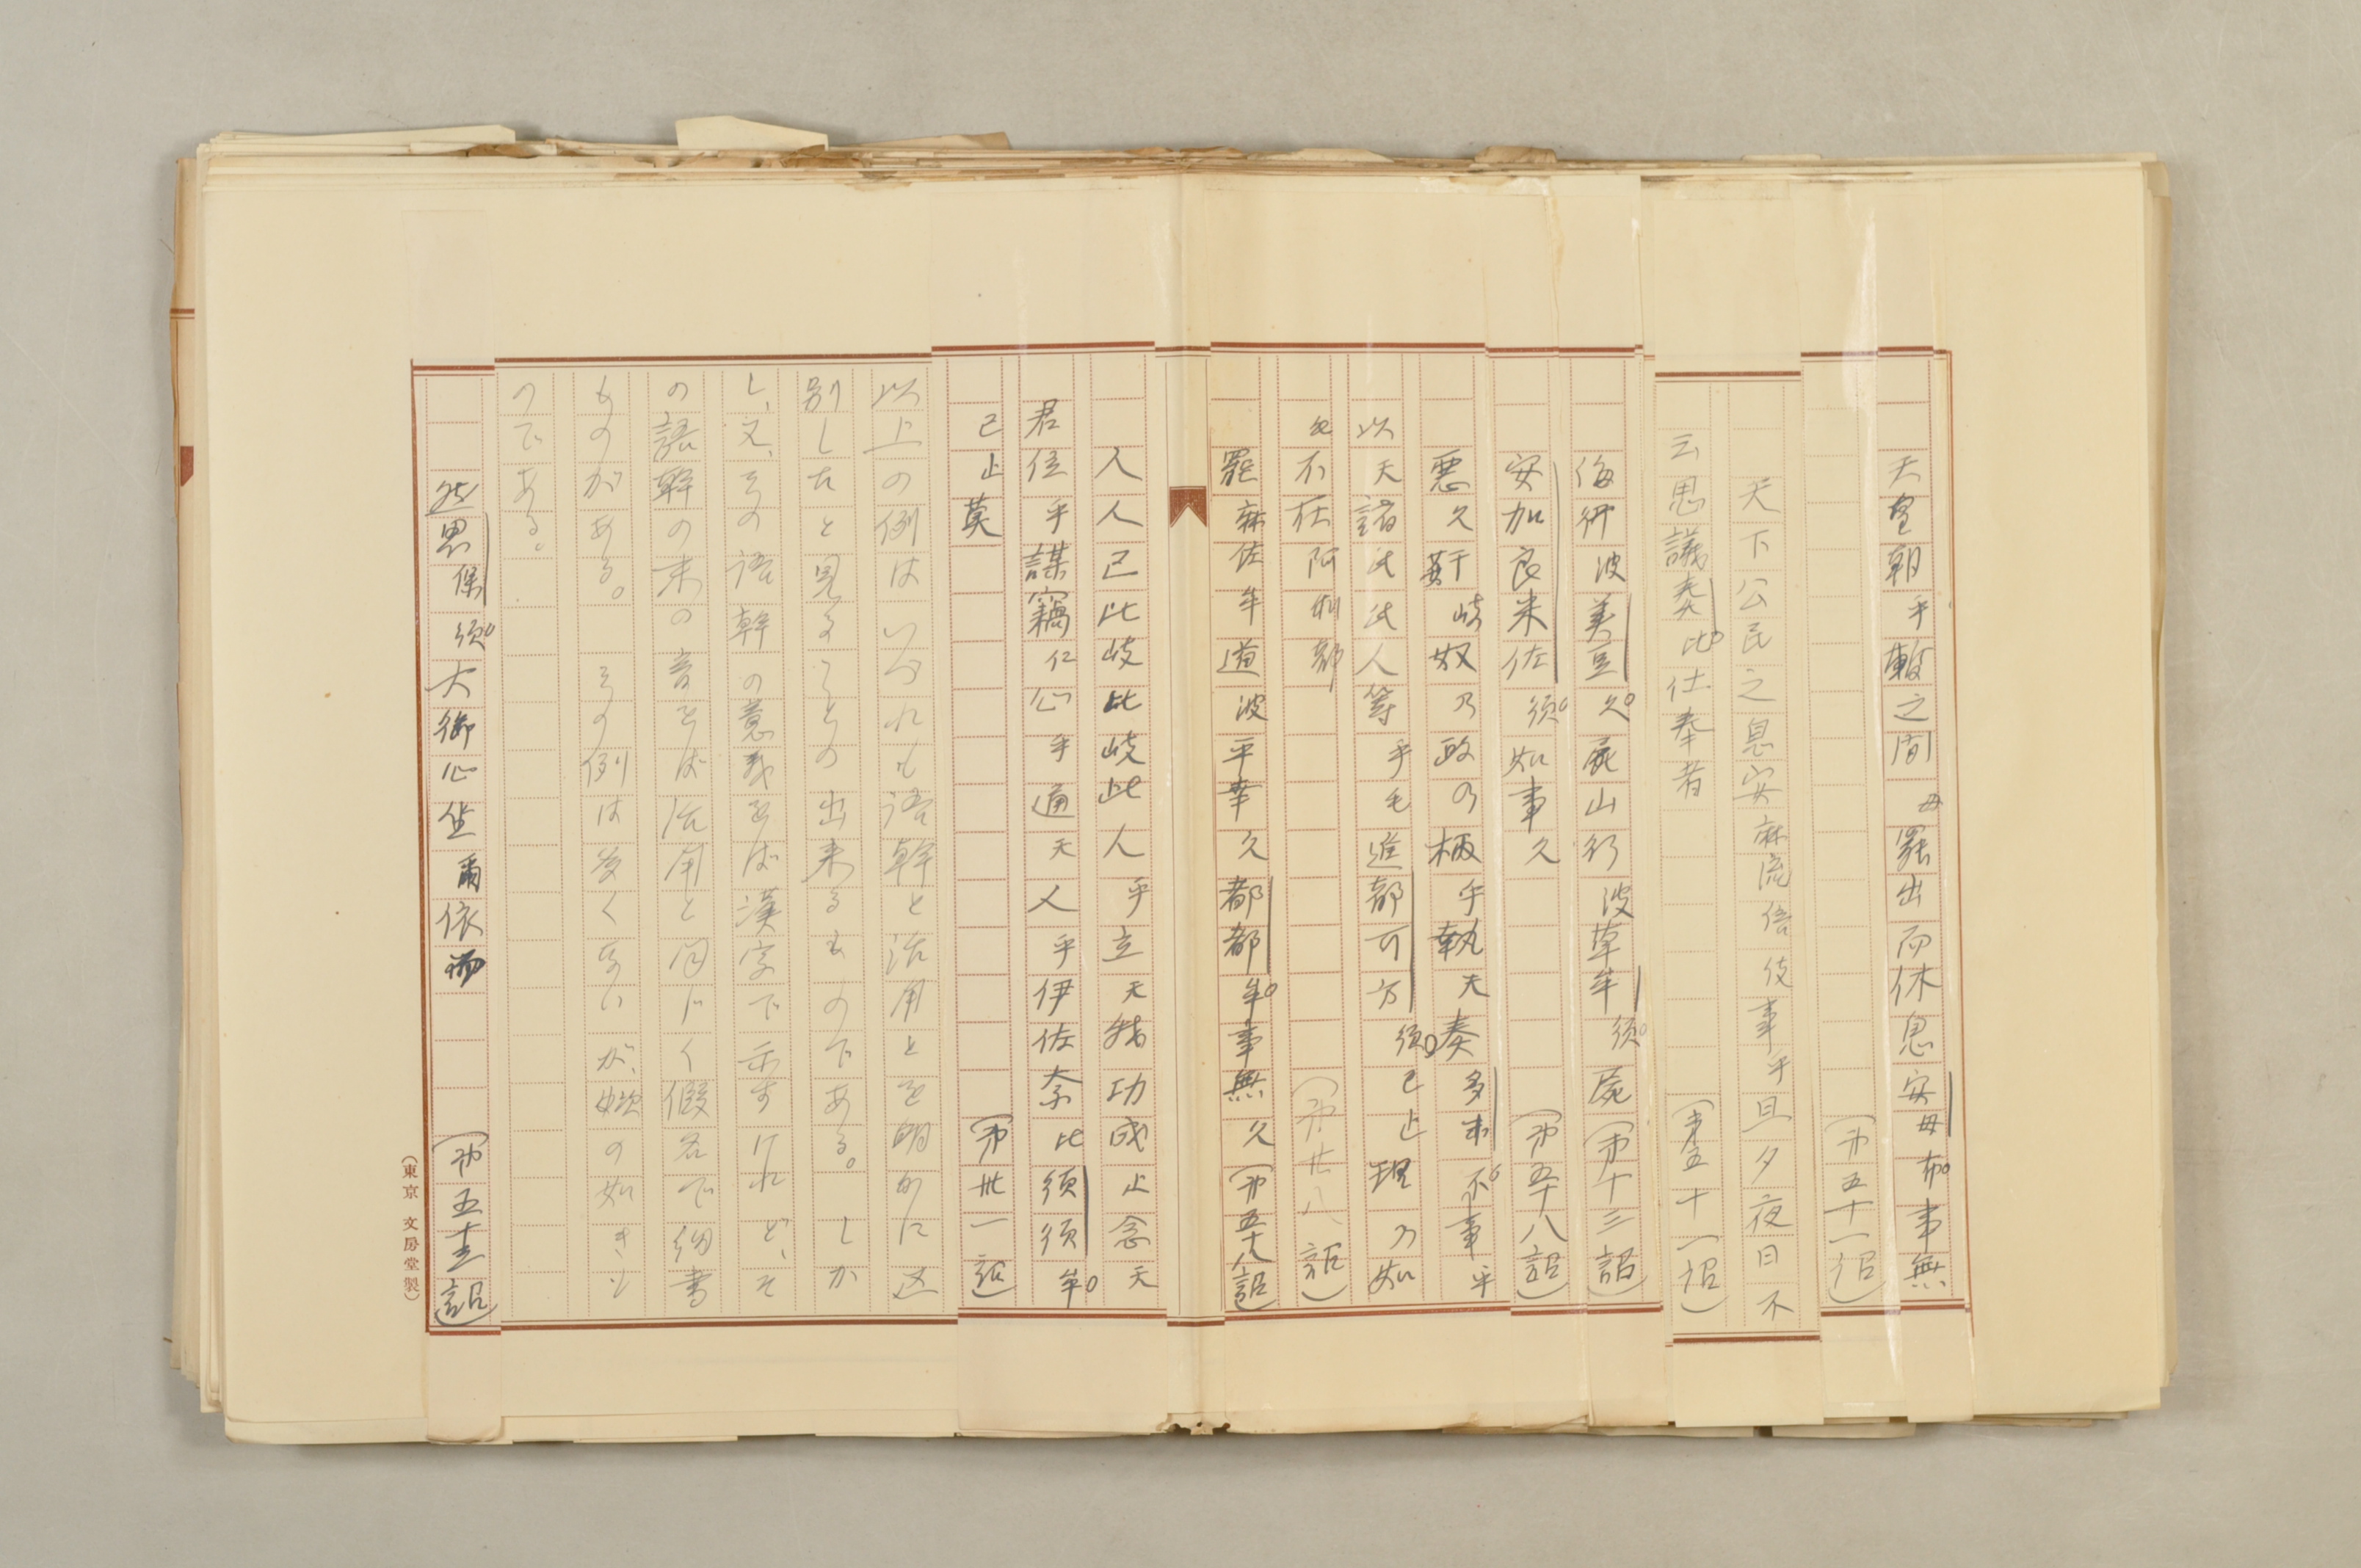 天皇朝乎蹔之間母罷出而休息安母布事無
(第五十一詔)
天下公民之息安麻流倍伎事乎旦夕夜日不
云思議奏比仕奉者
(第五十一詔)
海行波美豆久屍山行波草牟須屍(第十三詔)
安加良米佐須如事久
(第五十八詔)
悪久姧岐奴乃政乃柄乎執天奏多末不事乎
以天諸氏氏人等乎毛進都可方須己止理乃如
毛不在阿利都
(第廿八詔)
罷麻佐牟道波平幸久都都牟事無久(第五十八詔)
人人己比岐比岐此人乎立天我功成止念天
君位乎謀竊仁心乎通天人乎伊佐奈比須須牟
己止莫
(第卅一詔)
以上の例はいづれも語幹と活用とを明かに区
別したと見ることの出来るものである。しか
し、又、その語幹の意義をば漢字で示すけれど、そ
の語幹の末の音をば活用と同じく假名で細書
ものがある。その例は多くないが、次の如きも
のである。
然思保須大御心坐爾依而
(第五十一詔)
(東京 文房堂製)